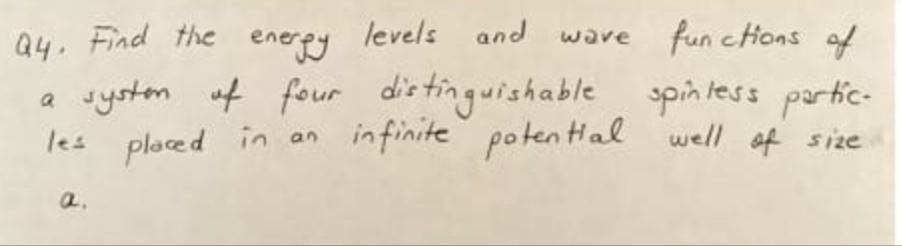 Q4. Find the energy levels and wave functions of
a system of four distinguishable spinless partic-
les placed in an infinite potential well of size
a.